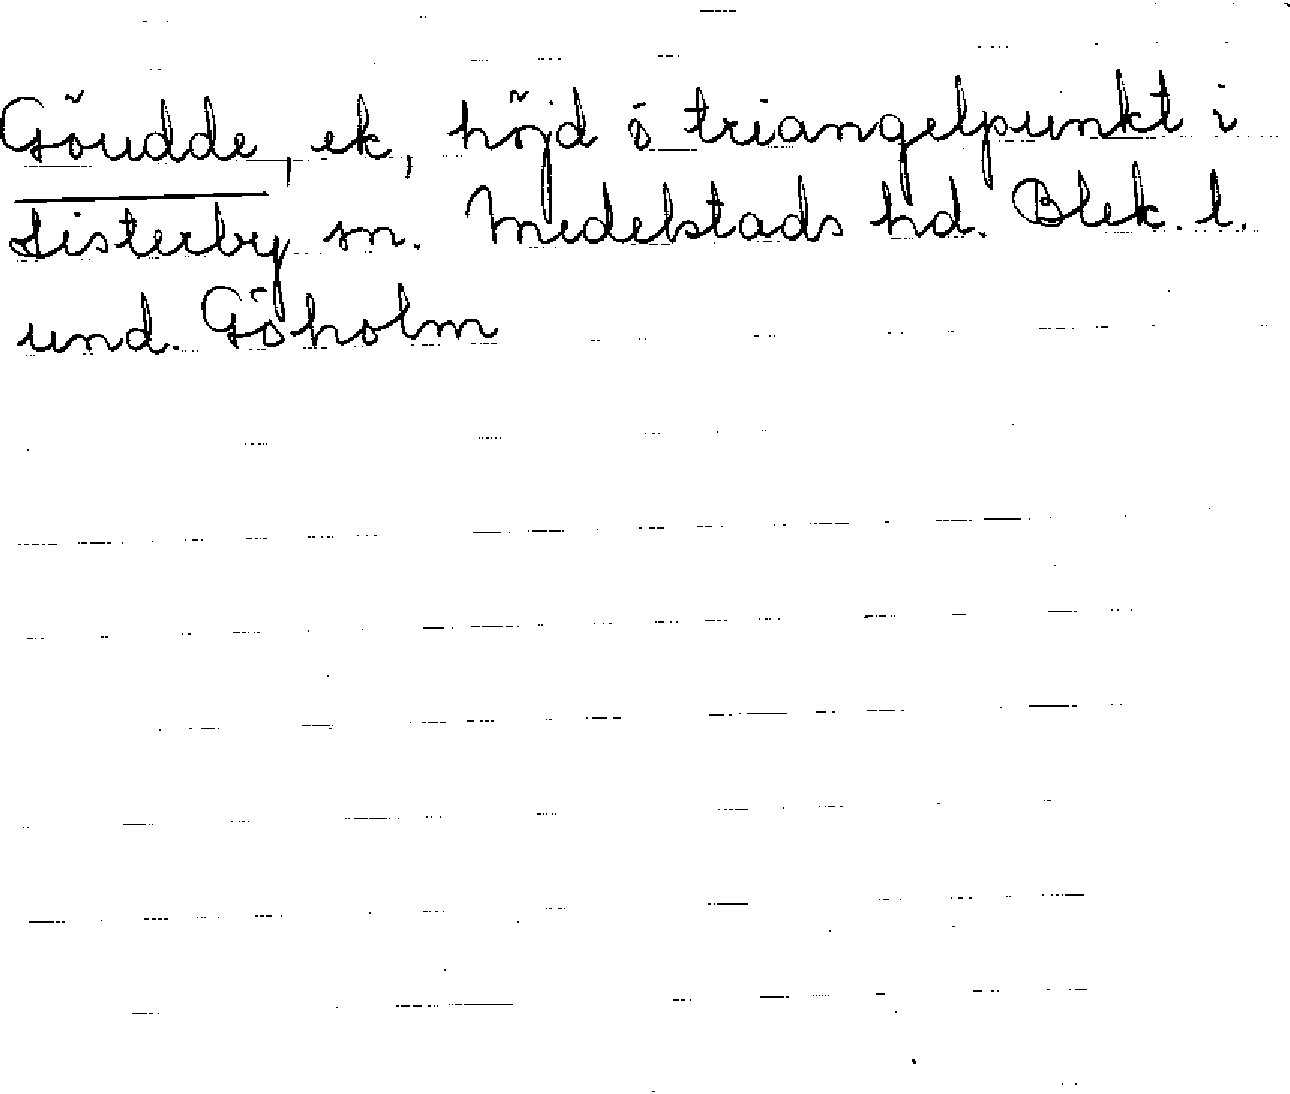 Göudde, ek, höjd ö triangelpunkt i
Listerby sn. Medelstads hd. Blek. l.
und. Göholm